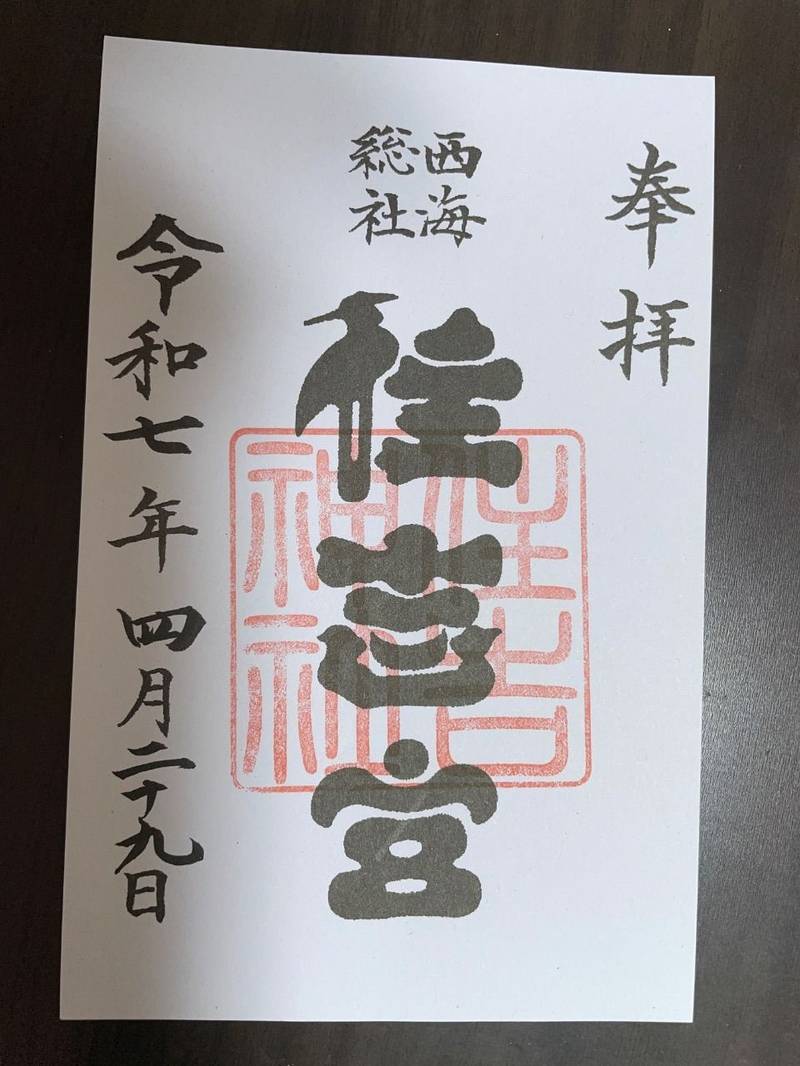 奉拝
西海
総社
住吉宮
住吉
神社
令和七年四月二十九日